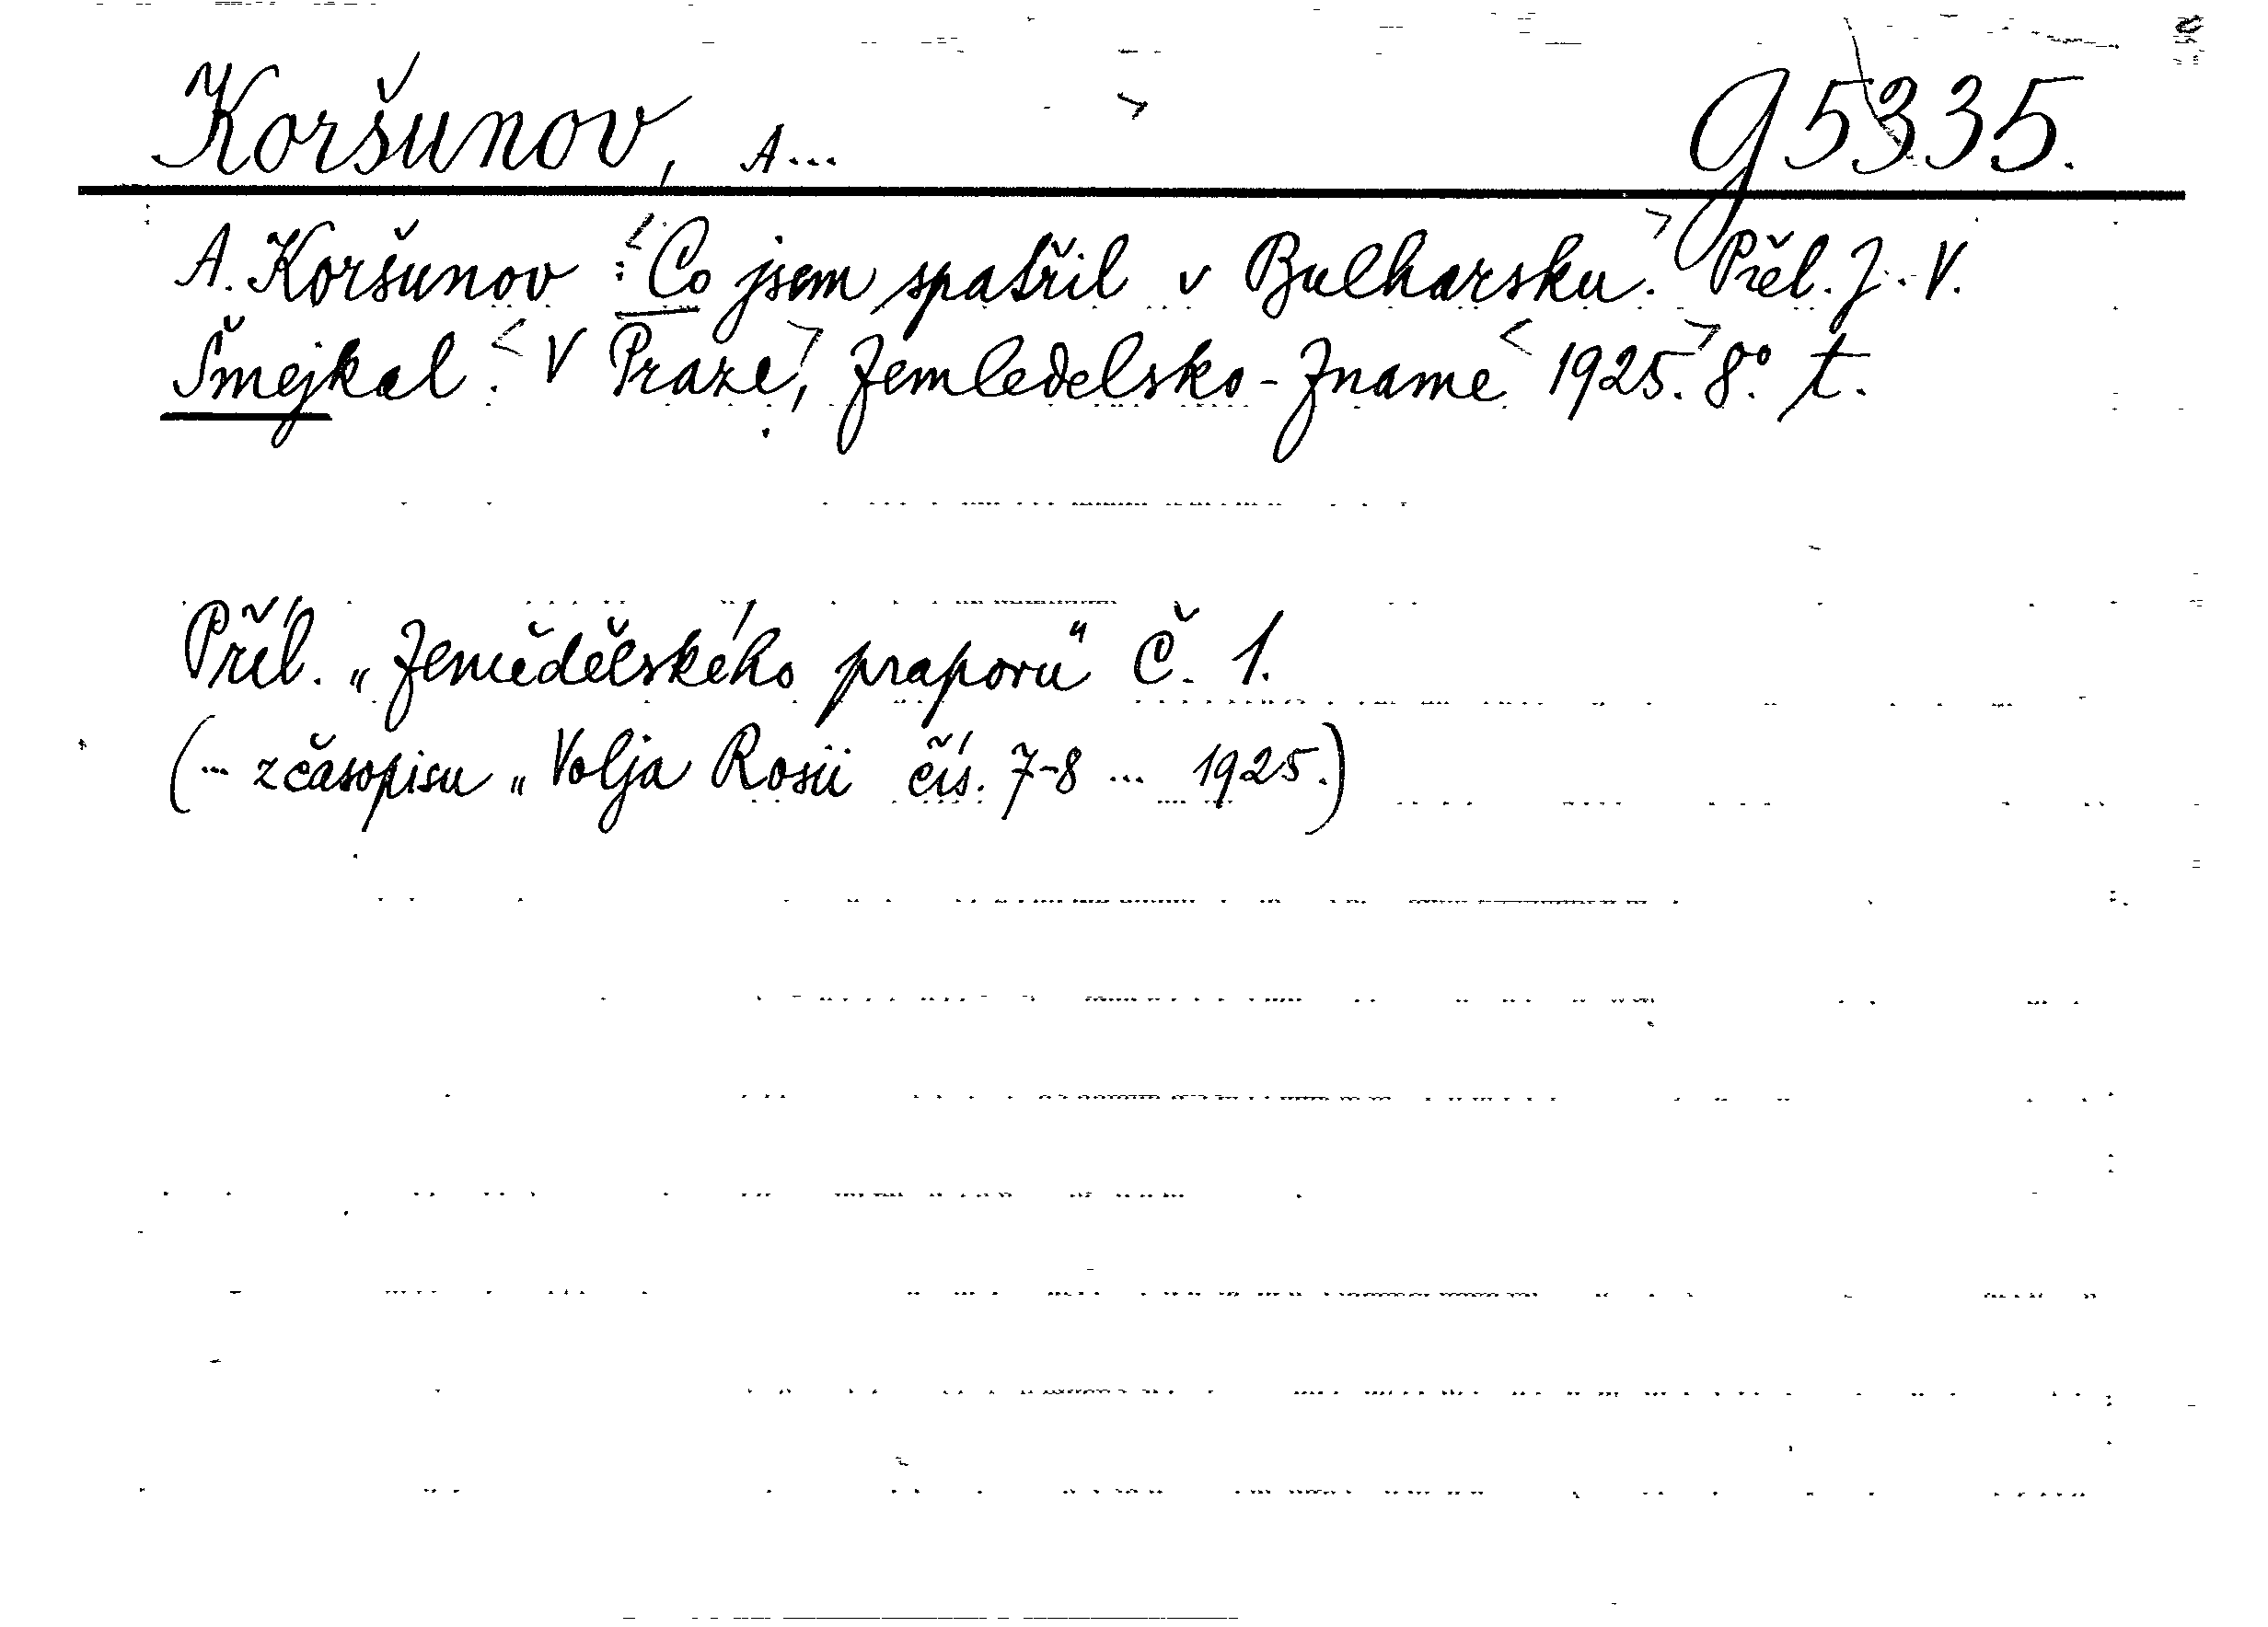 Koršunov, A... g 5335.
A. Koršunov : <Co jsem spatřil v Bulharsku.> Přel. J. V.
Šmejkal. <V Praze,> Zemledelsko-Zname <1925.> 8° t.
Příl. „Zemědělského praporu" Č. 1.
(... z časopisu „Volja Rosii čís. 7-8 ... 1925.)